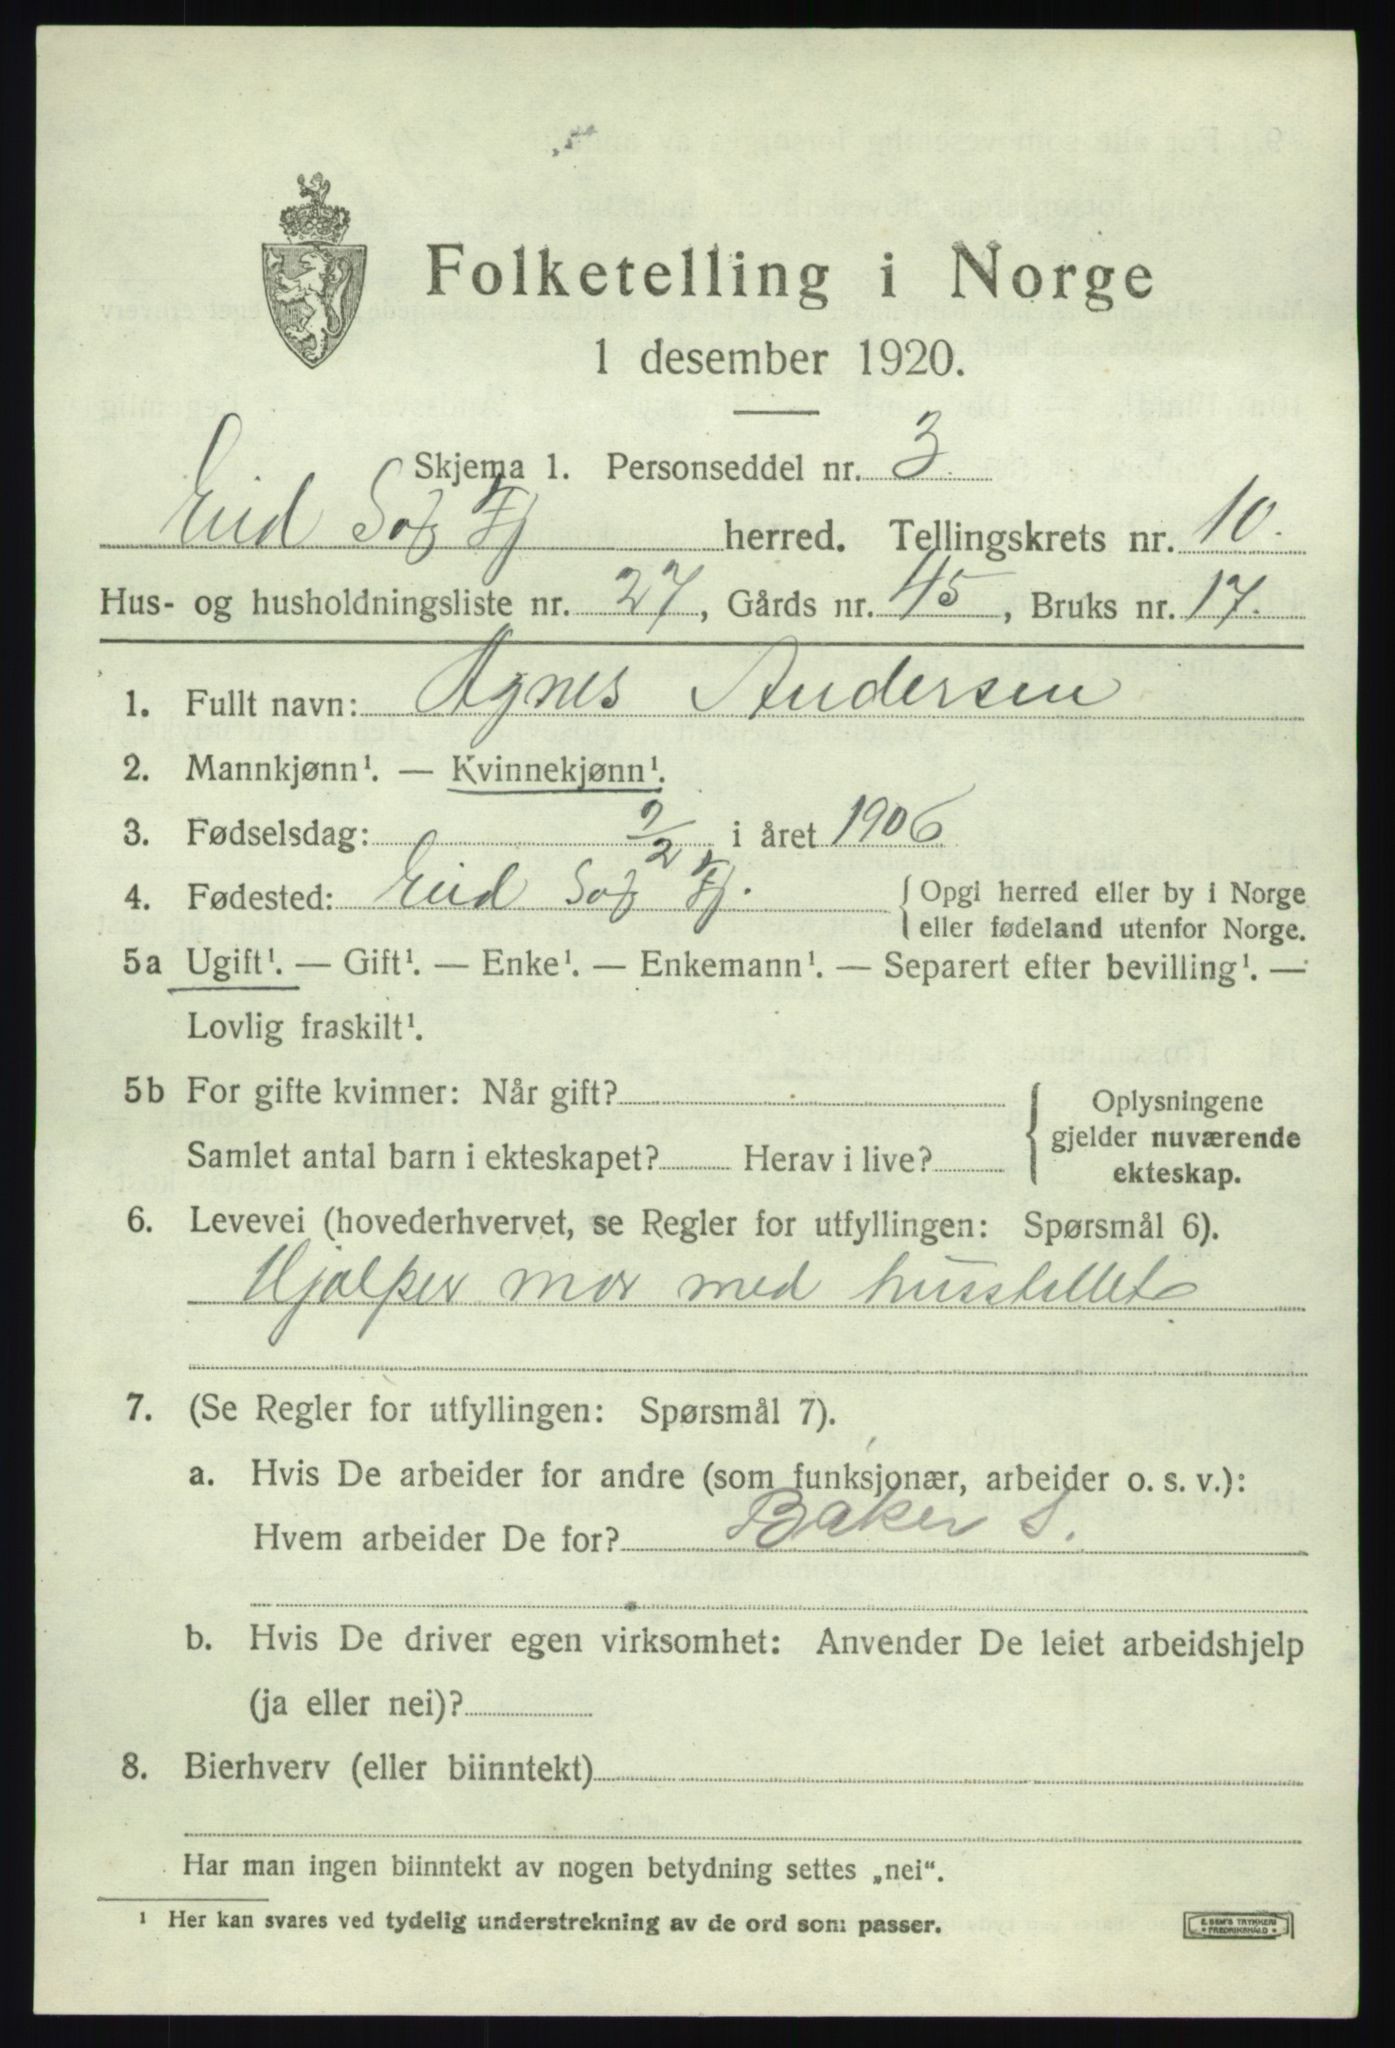 Folketelling i Norge
1 desember 1920.
Skjema 1. Personseddel nr. 3.
Eid Sof Fj herred. Tellingskrets nr. 10.
Hus- og husholdningsliste nr. 27, Gårds nr. 45, Bruks nr. 17.
1. Fullt navn: Agnes Andersen
2. Mannkjønn¹. — Kvinnekjønn¹.
3. Fødselsdag: 9/2 i året 1906
4. Fødested: Eid Sof Fj. { Opgi herred eller by i Norge
eller fødeland utenfor Norge.
5a Ugift¹. — Gift¹. — Enke¹. — Enkemann¹. — Separert efter bevilling¹. —
Lovlig fraskilt¹.
5b For gifte kvinner: Når gift?
Samlet antal barn i ekteskapet? Herav i live?
{ Oplysningene
gjelder nuværende
ekteskap.
6. Levevei (hovederhvervet, se Regler for utfyllingen: Spørsmål 6).
Hjælper mor med husstellet
7. (Se Regler for utfyllingen: Spørsmål 7).
a. Hvis De arbeider for andre (som funksjonær, arbeider o. s. v.):
Hvem arbeider De for? Baker S.
b. Hvis De driver egen virksomhet: Anvender De leiet arbeidshjelp
(ja eller nei)?
8. Bierhverv (eller biinntekt)
Har man ingen biinntekt av nogen betydning settes „nei“.
¹ Her kan svares ved tydelig understrekning av de ord som passer.
E. SEM'S TRYKKERI
FREDRIKSHALD